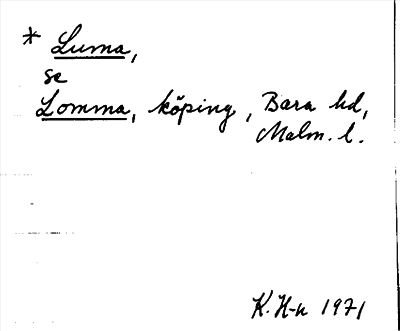 * Luma,
se
Lomma, köping, Bara hd,
Malm. l.
K. H-n 1971